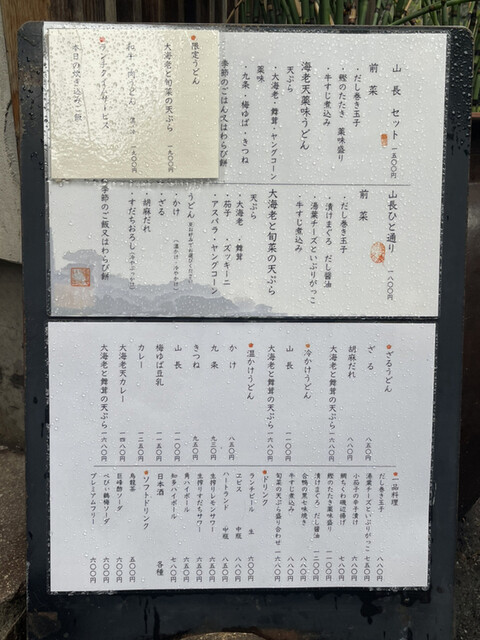 山長 セット 一五〇〇円
前菜
・だし巻き玉子
・鰹のたたき 薬味盛り
・牛すじ煮込み
海老天薬味うどん
天ぷら
・大海老・舞茸・ヤングコーン
薬味
・九条・梅ゆば・きつね
季節のごはん又はわらび餅
限定うどん
大海老と旬菜の天ぷら 一九〇〇円
ランチタイムサービス
本日の炊き込みご飯
山長ひと通り 一八〇〇円
前菜
・だし巻き玉子
・漬けまぐろ だし醤油
・湯葉チーズといぶりがっこ
・牛すじ煮込み
大海老と旬菜の天ぷら
天ぷら
・大海老 ・舞茸
・茄子 ・ズッキーニ
・アスパラ・ヤングコーン
うどん
・かけ (温かけ・冷やかけ)
・ざる
・胡麻だれ
・すだちおろし
季節のご飯又はわらび餅
ざるうどん
ざる 八五〇円
胡麻だれ 八八〇円
大海老と舞茸の天ぷら 一六八〇円
冷かけうどん
山長 一一〇〇円
大海老と舞茸の天ぷら 一六八〇円
温かけうどん
かけ 八五〇円
九条 九三〇円
きつね 九五〇円
山長 一一〇〇円
梅ゆば豆乳 一一五〇円
カレー 一二五〇円
大海老天カレー 一四八〇円
大海老と舞茸の天ぷら 一六八〇円
一品料理
だし巻き玉子
湯葉チーズといぶりがっこ 七五〇円
小茄子の辛子漬け
鯛ちくわ磯辺揚げ
鰹のたたき薬味盛り
漬けまぐろ だし醤油 一二〇〇円
合鴨の黒七味焼き
牛すじ煮込み
旬菜の天ぷら盛り合わせ
ドリンク
ランチビール 生
ヱビス 中瓶
ハートランド 中瓶
生搾りレモンサワー
生搾りすだちサワー
角ハイボール
知多ハイボール 七八〇円
日本酒 各種
ソフトドリンク
烏龍茶 五〇〇円
巨峰酢ソーダ
べびぃ鶴梅ソーダ
プレミアムフリー 六〇〇円